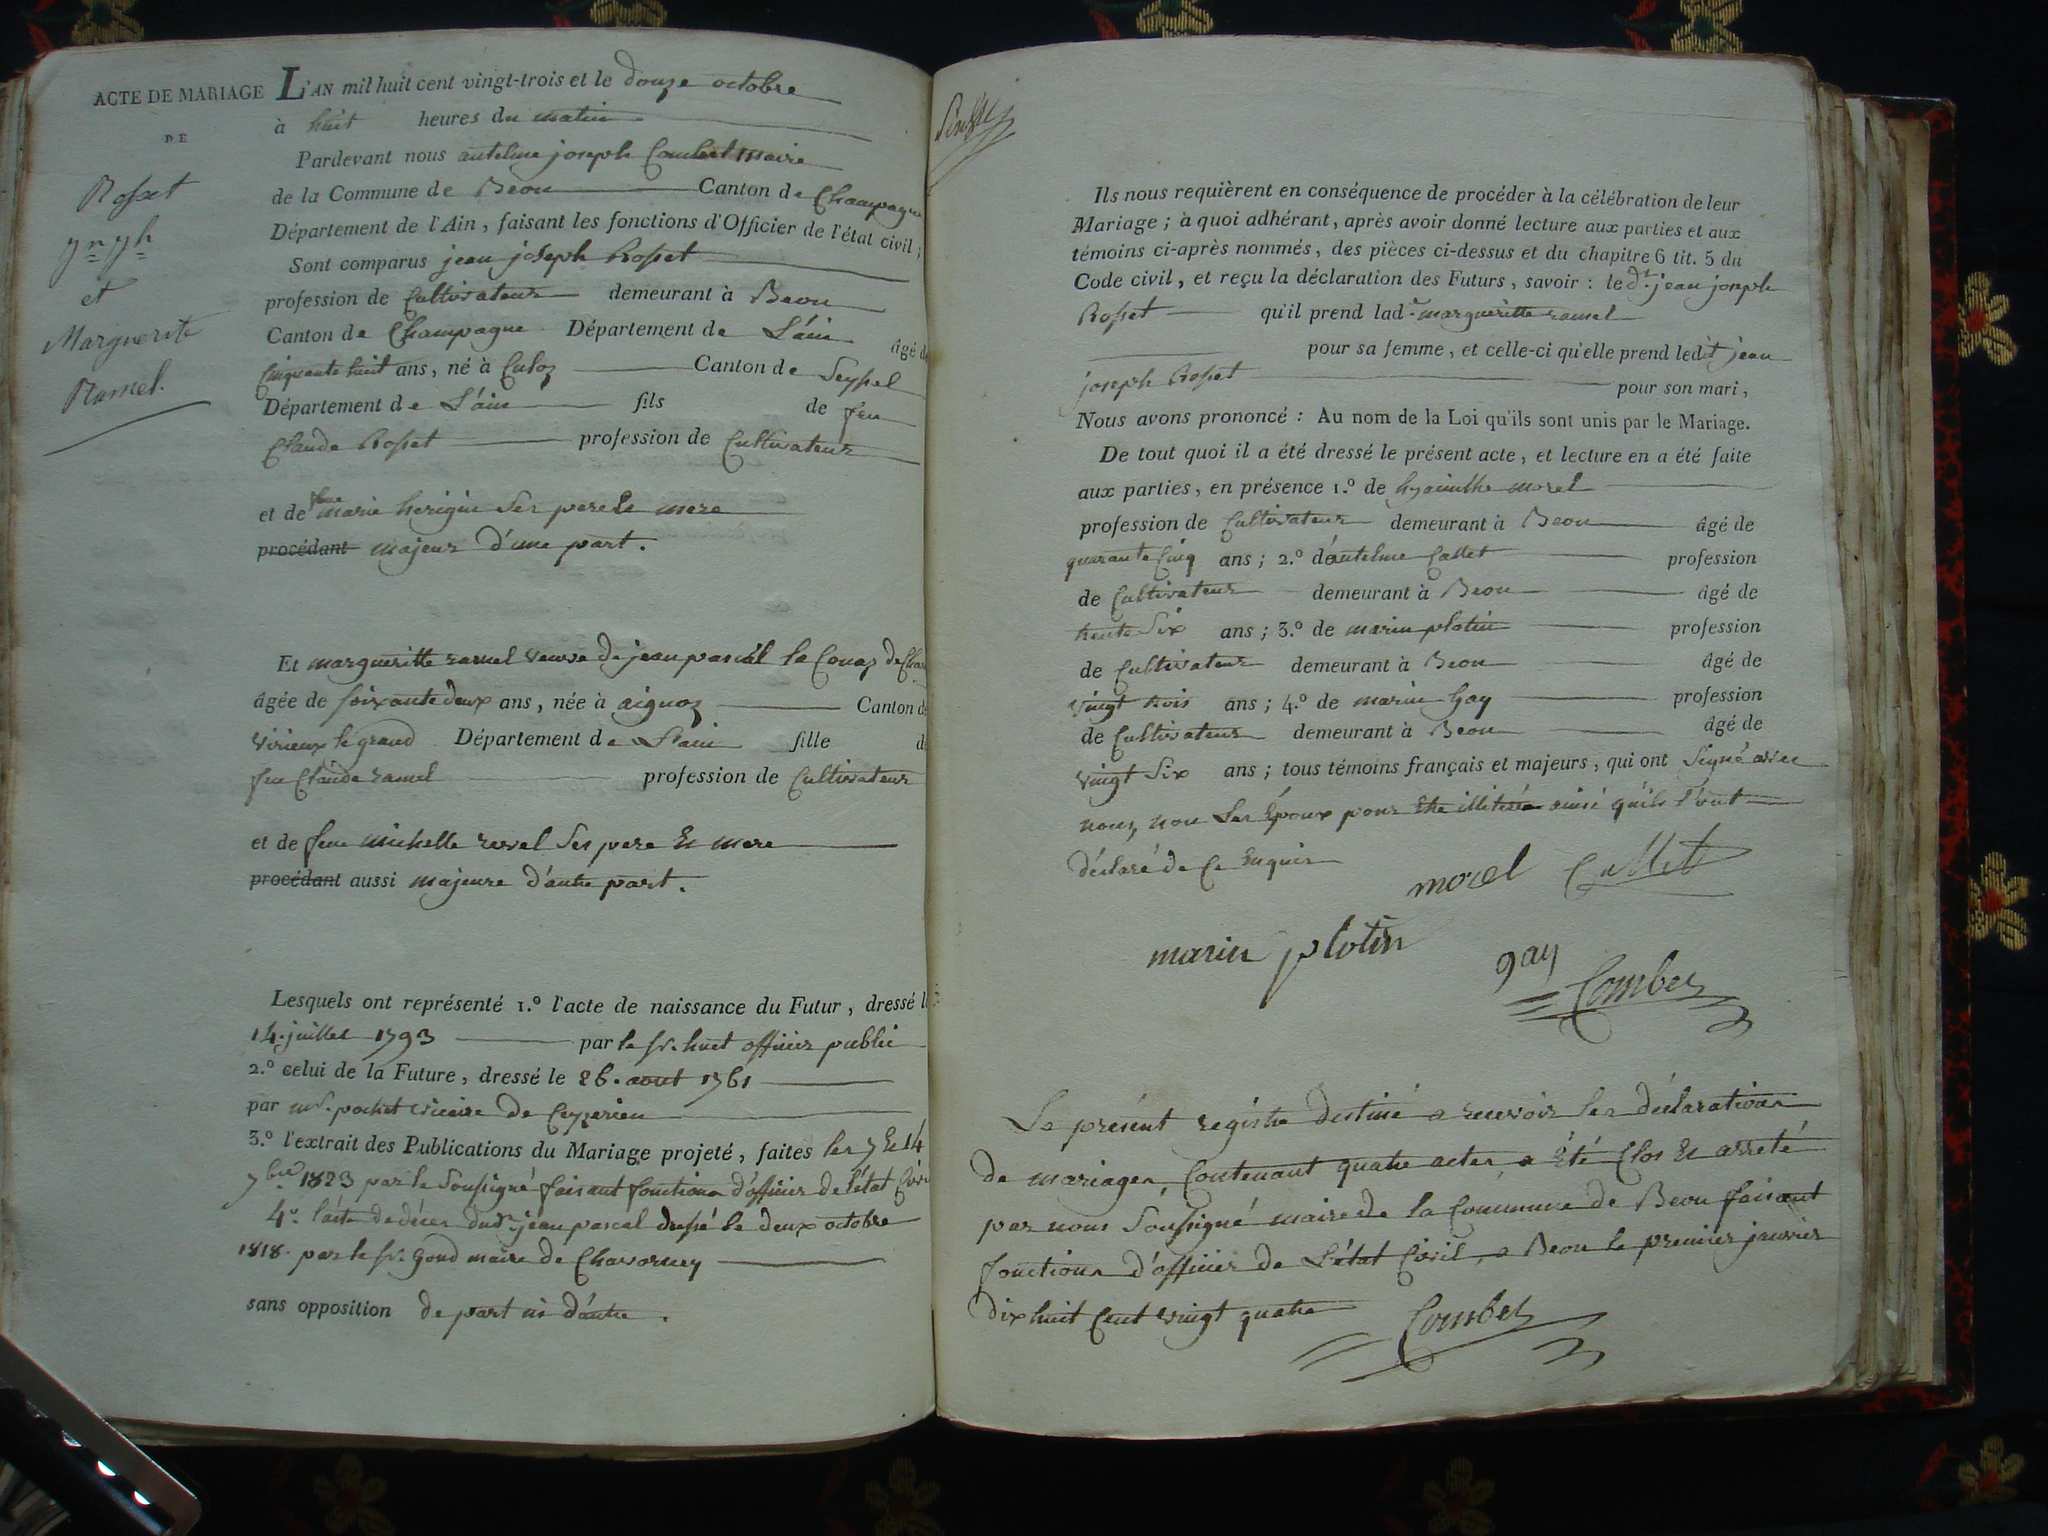 ACTE DE MARIAGE
DE
Rosset
Jn Jh
et
Marguerite
Ramel.
L'AN mil huit cent vingt-trois et le douze octobre
à huit heures du matin
Pardevant nous antelme joseph Combet maire
de la Commune de Beon Canton de Champagne
Département de l'Ain, faisant les fonctions d'Officier de l'état civil ;
Sont comparus jean joseph Rosset
profession de Cultivateur demeurant à Beon
Canton de Champagne Département de L'ain âgé de
Cinquante huit ans, né à Culoz Canton de Seyssel
Département de L'ain fils de feu
Claude Rosset profession de Cultivateur
et de feue marie herigin ses pere & mere
procédant majeur d'une part.
Et margueritte ramel veuve de jean pascal
âgée de soixante deux ans, née à aignoz Canton de
virieux le grand Département de L'ain fille de
feu Claude ramel profession de Cultivateur
et de feue michelle revel ses pere & mere
procédant aussi majeure d'autre part.
Lesquels ont représenté 1.º l'acte de naissance du Futur, dressé le
14. juillet 1793 par le sr. huet officier public
2.º celui de la Future, dressé le 26. aout 1761
par mr. pochet vicaire de Ceyzerieu
3.º l'extrait des Publications du Mariage projeté, faites les 7 & 14
7bre 1823 par le Soussigné faisant fonctions d'officier de l'état Civil
4º. l'acte de décès dud. jean pascal dressé le deux octobre
1818. par le sr. Gond maire de Chavorney
sans opposition de part ni d'autre.
Ils nous requièrent en conséquence de procéder à la célébration de leur
Mariage ; à quoi adhérant, après avoir donné lecture aux parties et aux
témoins ci-après nommés, des pièces ci-dessus et du chapitre 6 tit. 5 du
Code civil, et reçu la déclaration des Futurs, savoir : le dt. jean joseph
Rosset qu'il prend lad.e margueritte ramel
pour sa femme, et celle-ci qu'elle prend ledit jean
joseph Rosset pour son mari,
Nous avons prononcé : Au nom de la Loi qu'ils sont unis par le Mariage.
De tout quoi il a été dressé le présent acte, et lecture en a été faite
aux parties, en présence 1.º de hyacinthe morel
profession de Cultivateur demeurant à Beon âgé de
quarante Cinq ans ; 2.º d'antelme Callet profession
de Cultivateur demeurant à Beon âgé de
trente Six ans ; 3.º de marin plotin profession
de Cultivateur demeurant à Beon âgé de
vingt trois ans ; 4.º de marin Gay profession
de Cultivateur demeurant à Beon âgé de
vingt Six ans ; tous témoins français et majeurs, qui ont Signé avec
nous, non Les Époux pour être illiterés ainsi qu'ils l'ont
déclaré de Ce Enquis
morel Callet
marin plotin
gay
Combet
Le présent registre destiné a recevoir les déclarations
de mariages Contenant quatre actes a été Clos & arreté
par nous Soussigné maire de la Commune de Beon faisant
fonctions d'officier de L'état Civil, a Beon le premier janvier
dix huit Cent vingt quatre
Combet